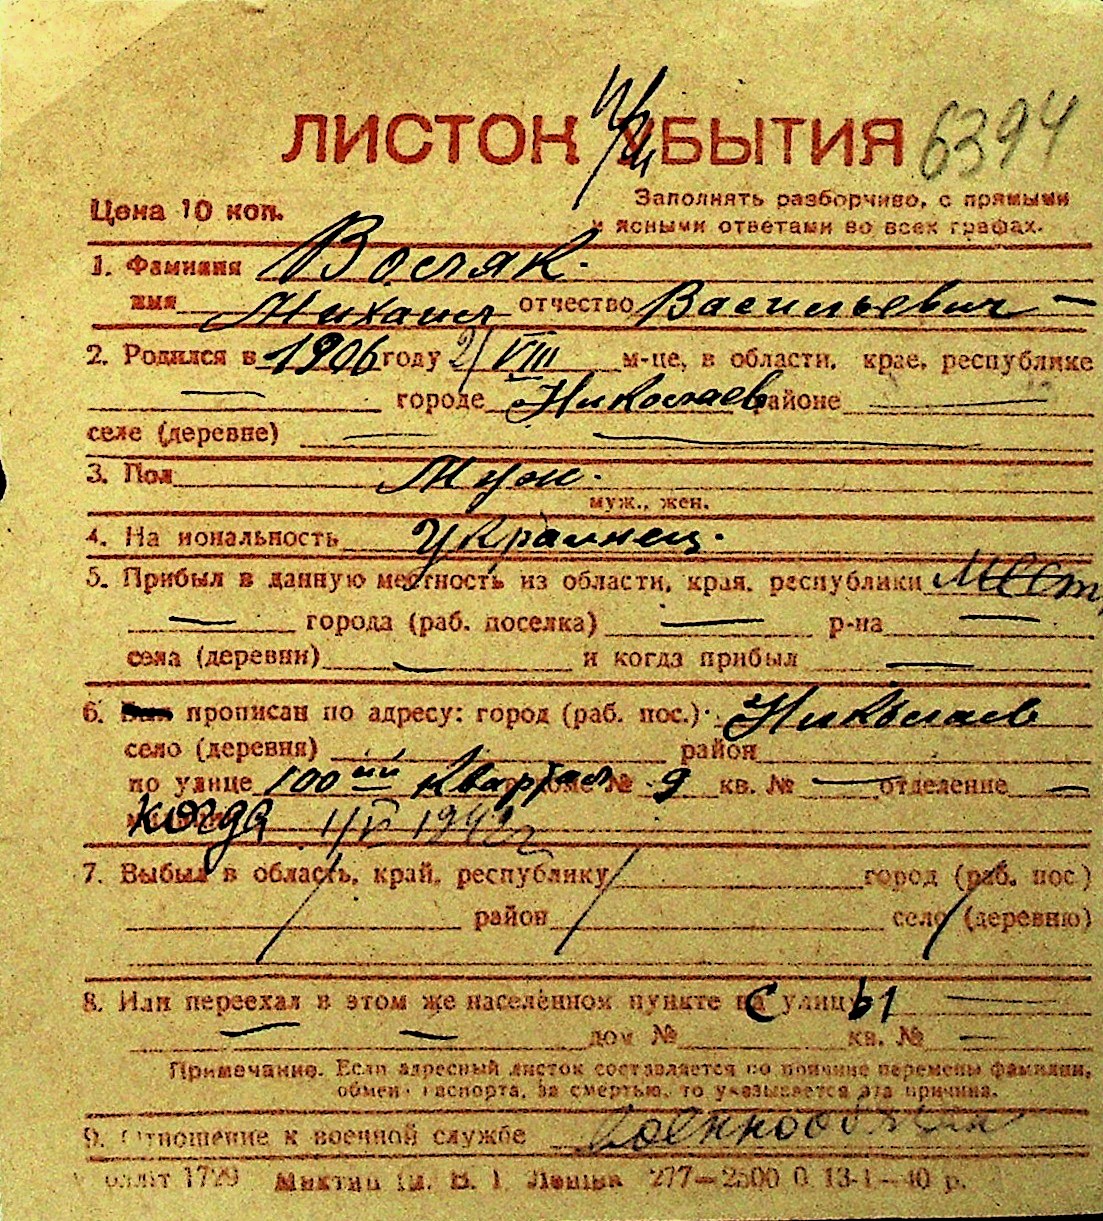 ЛИСТОК УБЫТИЯ 6394
При
Цена 10 коп.
Заполнять разборчиво, с прямыми
и ясными ответами во всех графах.
1. Фамилия
имя Михаил отчество Васильевич —
2. Родился в 1906 году 2/VIII м-це, в области, крае, республике
— городе Николаев районе —
селе (деревне) — —
3. Пол Муж.
муж., жен.
4. На иональность Украинец.
5. Прибыл в данную местность из области, края, республики Мест
— города (раб. поселка) — р-на —
села (деревни) — и когда прибыл —
6. прописан по адресу: город (раб. пос.) Николаев
село (деревня) район
по улице 100ий квартал доме № 9 кв. № — отделение —
когда
7. Выбыл в область, край, республику город (раб. пос.)
район село (деревню)
8. Или переехал в этом же населённом пункте с улицы —
— — дом № кв. № —
Примечание. Если адресный листок составляется по причине перемены фамилии,
обмен паспорта, за смертью, то указывается эта причина.
9. Отношение к военной службе военнообязан
1729 277—2500 0. 13-1—40 р.